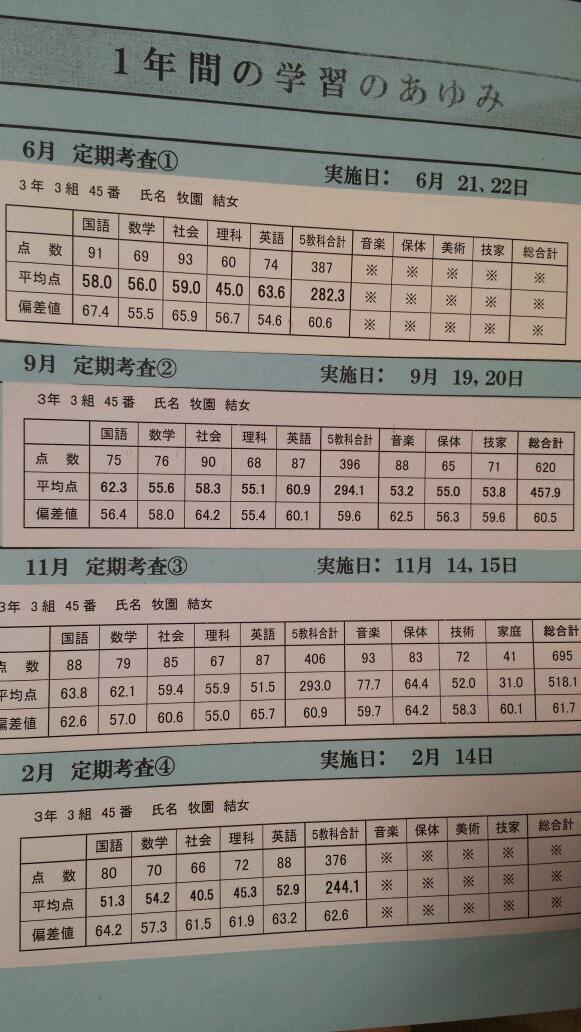 1年間の学習のあゆみ
6月 定期考査① 実施日： 6月 21、22日
3年 3組 45番 氏名 牧園 結女
国語 数学 社会 理科 英語 5教科合計 音楽 保体 美術 技家 総合計
点数 91 69 93 60 74 387 ※ ※ ※ ※ ※
平均点 58.0 56.0 59.0 45.0 63.6 282.3 ※ ※ ※ ※ ※
偏差値 67.4 55.5 65.9 56.7 54.6 60.6 ※ ※ ※ ※ ※
9月 定期考査② 実施日： 9月 19，20日
3年 3組 45番 氏名 牧園 結女
国語 数学 社会 理科 英語 5教科合計 音楽 保体 技家 総合計
点数 75 76 90 68 87 396 88 65 71 620
平均点 62.3 55.6 58.3 55.1 60.9 294.1 53.2 55.0 53.8 457.9
偏差値 56.4 58.0 64.2 55.4 60.1 59.6 62.5 56.3 59.6 60.5
11月 定期考査③ 実施日： 11月 14，15日
3年 3組 45番 氏名 牧園 結女
国語 数学 社会 理科 英語 5教科合計 音楽 保体 技術 家庭 総合計
点数 88 79 85 67 87 406 93 83 72 41 695
平均点 63.8 62.1 59.4 55.9 51.5 293.0 77.7 64.4 52.0 31.0 518.1
偏差値 62.6 57.0 60.6 55.0 65.7 60.9 59.7 64.2 58.3 60.1 61.7
2月 定期考査④ 実施日： 2月 14日
3年 3組 45番 氏名 牧園 結女
国語 数学 社会 理科 英語 5教科合計 音楽 保体 美術 技家 総合計
点数 80 70 66 72 88 376 ※ ※ ※ ※ ※
平均点 51.3 54.2 40.5 45.3 52.9 244.1 ※ ※ ※ ※ ※
偏差値 64.2 57.3 61.5 61.9 63.2 62.6 ※ ※ ※ ※ ※